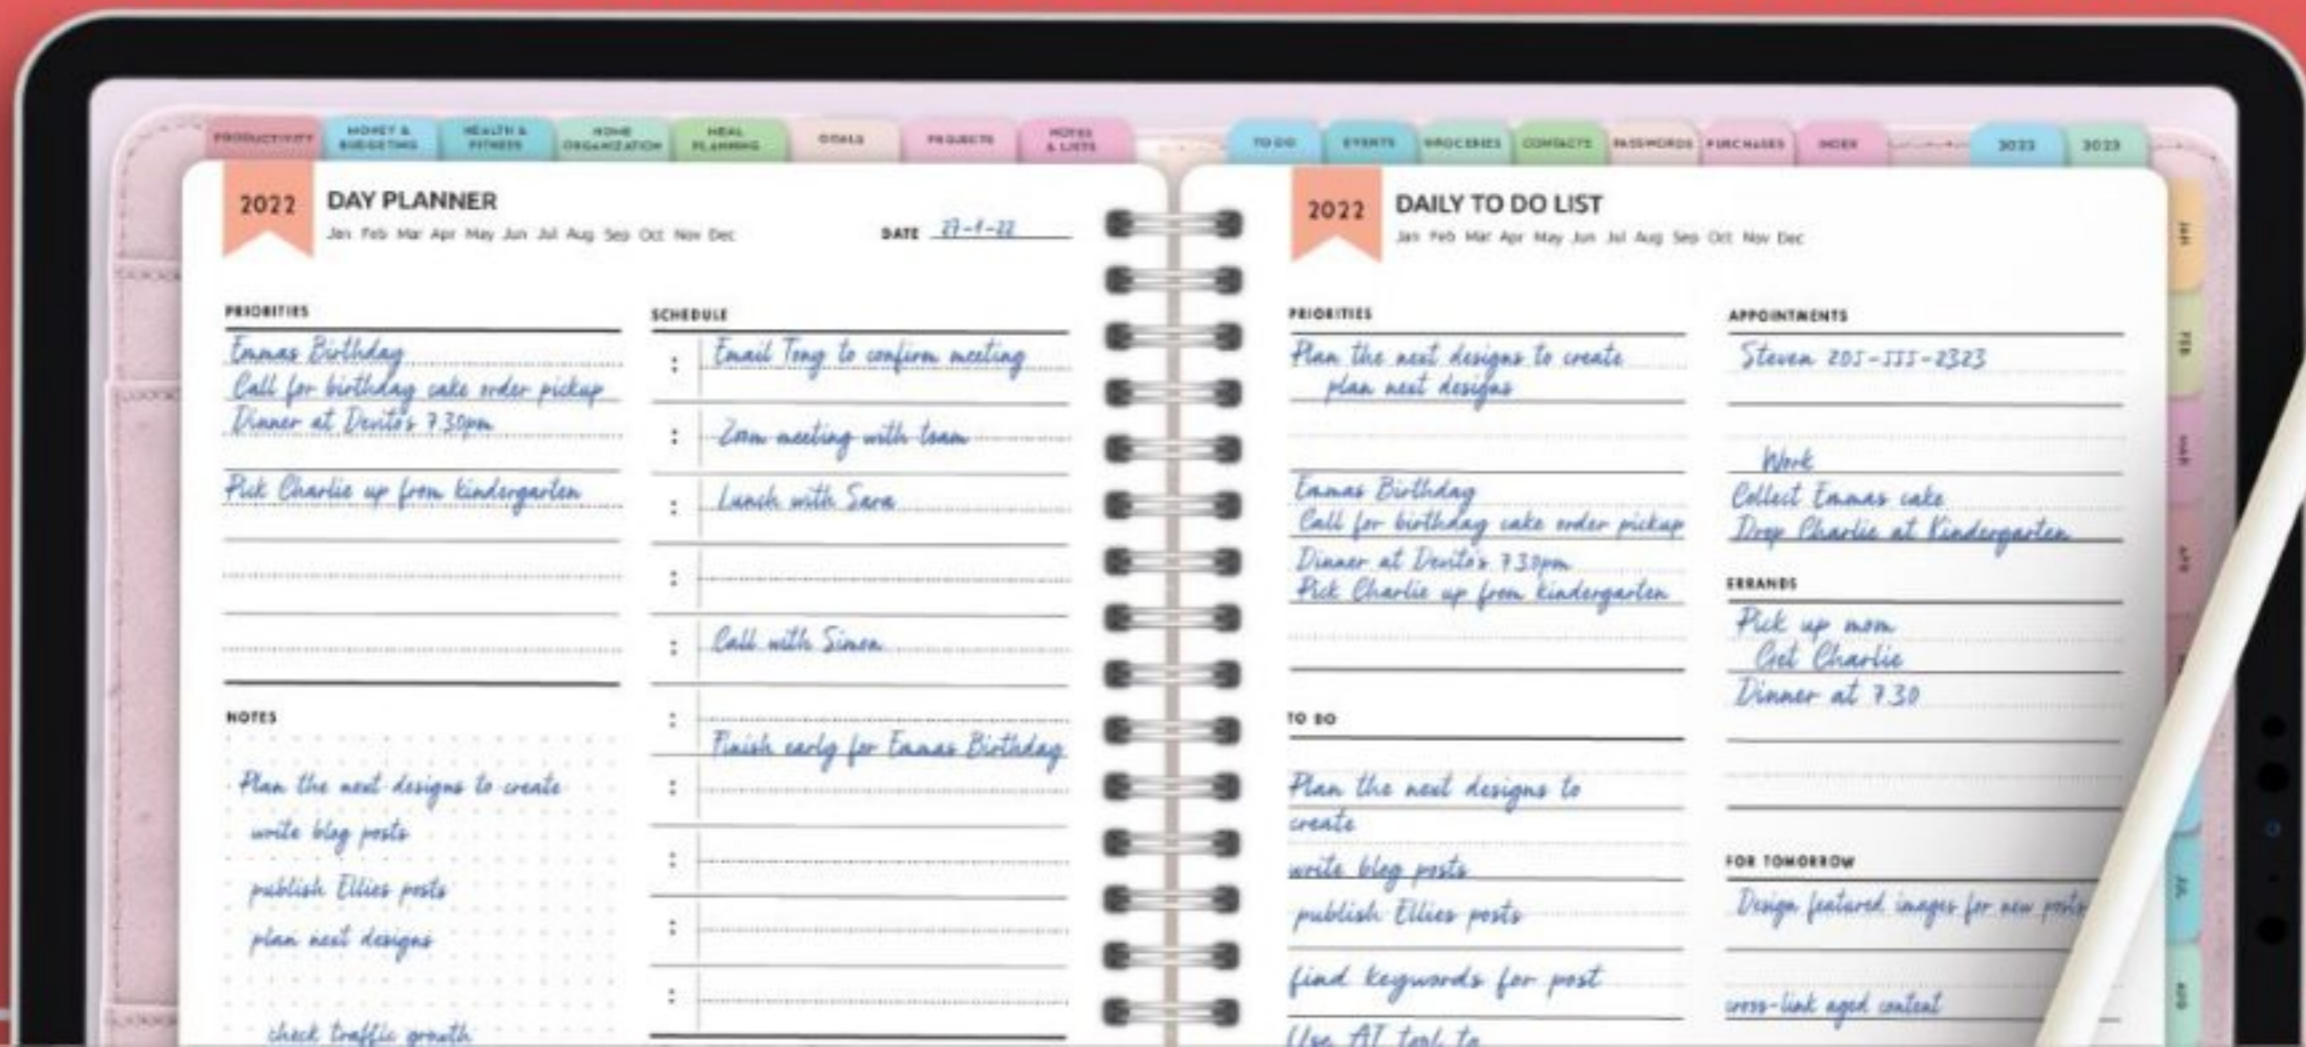 PRODUCTIVITY
MONEY &
BUDGETING
HEALTH &
FITNESS
HOME
ORGANIZATION
MEAL
PLANNING
GOALS
PROJECTS
NOTES
& LISTS
TO DO
EVENTS
GROCERIES
CONTACTS
PASSWORDS
PURCHASES
INDEX
2023
2022
DAY PLANNER
Jan Feb Mar Apr May Jun Jul Aug Sep Oct Nov Dec
DATE
PRIORITIES
Emmas Birthday
Call for birthday cake order pickup
Dinner at Devito's 7.30pm
Pick Charlie up from kindergarten
NOTES
Plan the next designs to create
write blog posts
publish Ellies posts
plan next designs
check traffic growth
SCHEDULE
: Email Tony to confirm meeting
: Zoom meeting with team
: Lunch with Sara
:
: Call with Simon
:
Finish early for Emmas Birthday
:
:
:
:
2022
DAILY TO DO LIST
Jan Feb Mar Apr May Jun Jul Aug Sep Oct Nov Dec
PRIORITIES
Plan the next designs to create
plan next designs
Emmas Birthday
Call for birthday cake order pickup
Dinner at Devito's 7.30pm
Pick Charlie up from kindergarten
TO DO
Plan the next designs to
create
write blog posts
publish Ellies posts
find keywords for post
Use AI tool to
APPOINTMENTS
Steven 205-555-2323
Work
Collect Emmas cake
Drop Charlie at Kindergarten
ERRANDS
Pick up mom
Get Charlie
Dinner at 7.30
FOR TOMORROW
Design featured images for new posts
cross-link aged content
JAN
FEB
MAR
APR
JUL
AUG